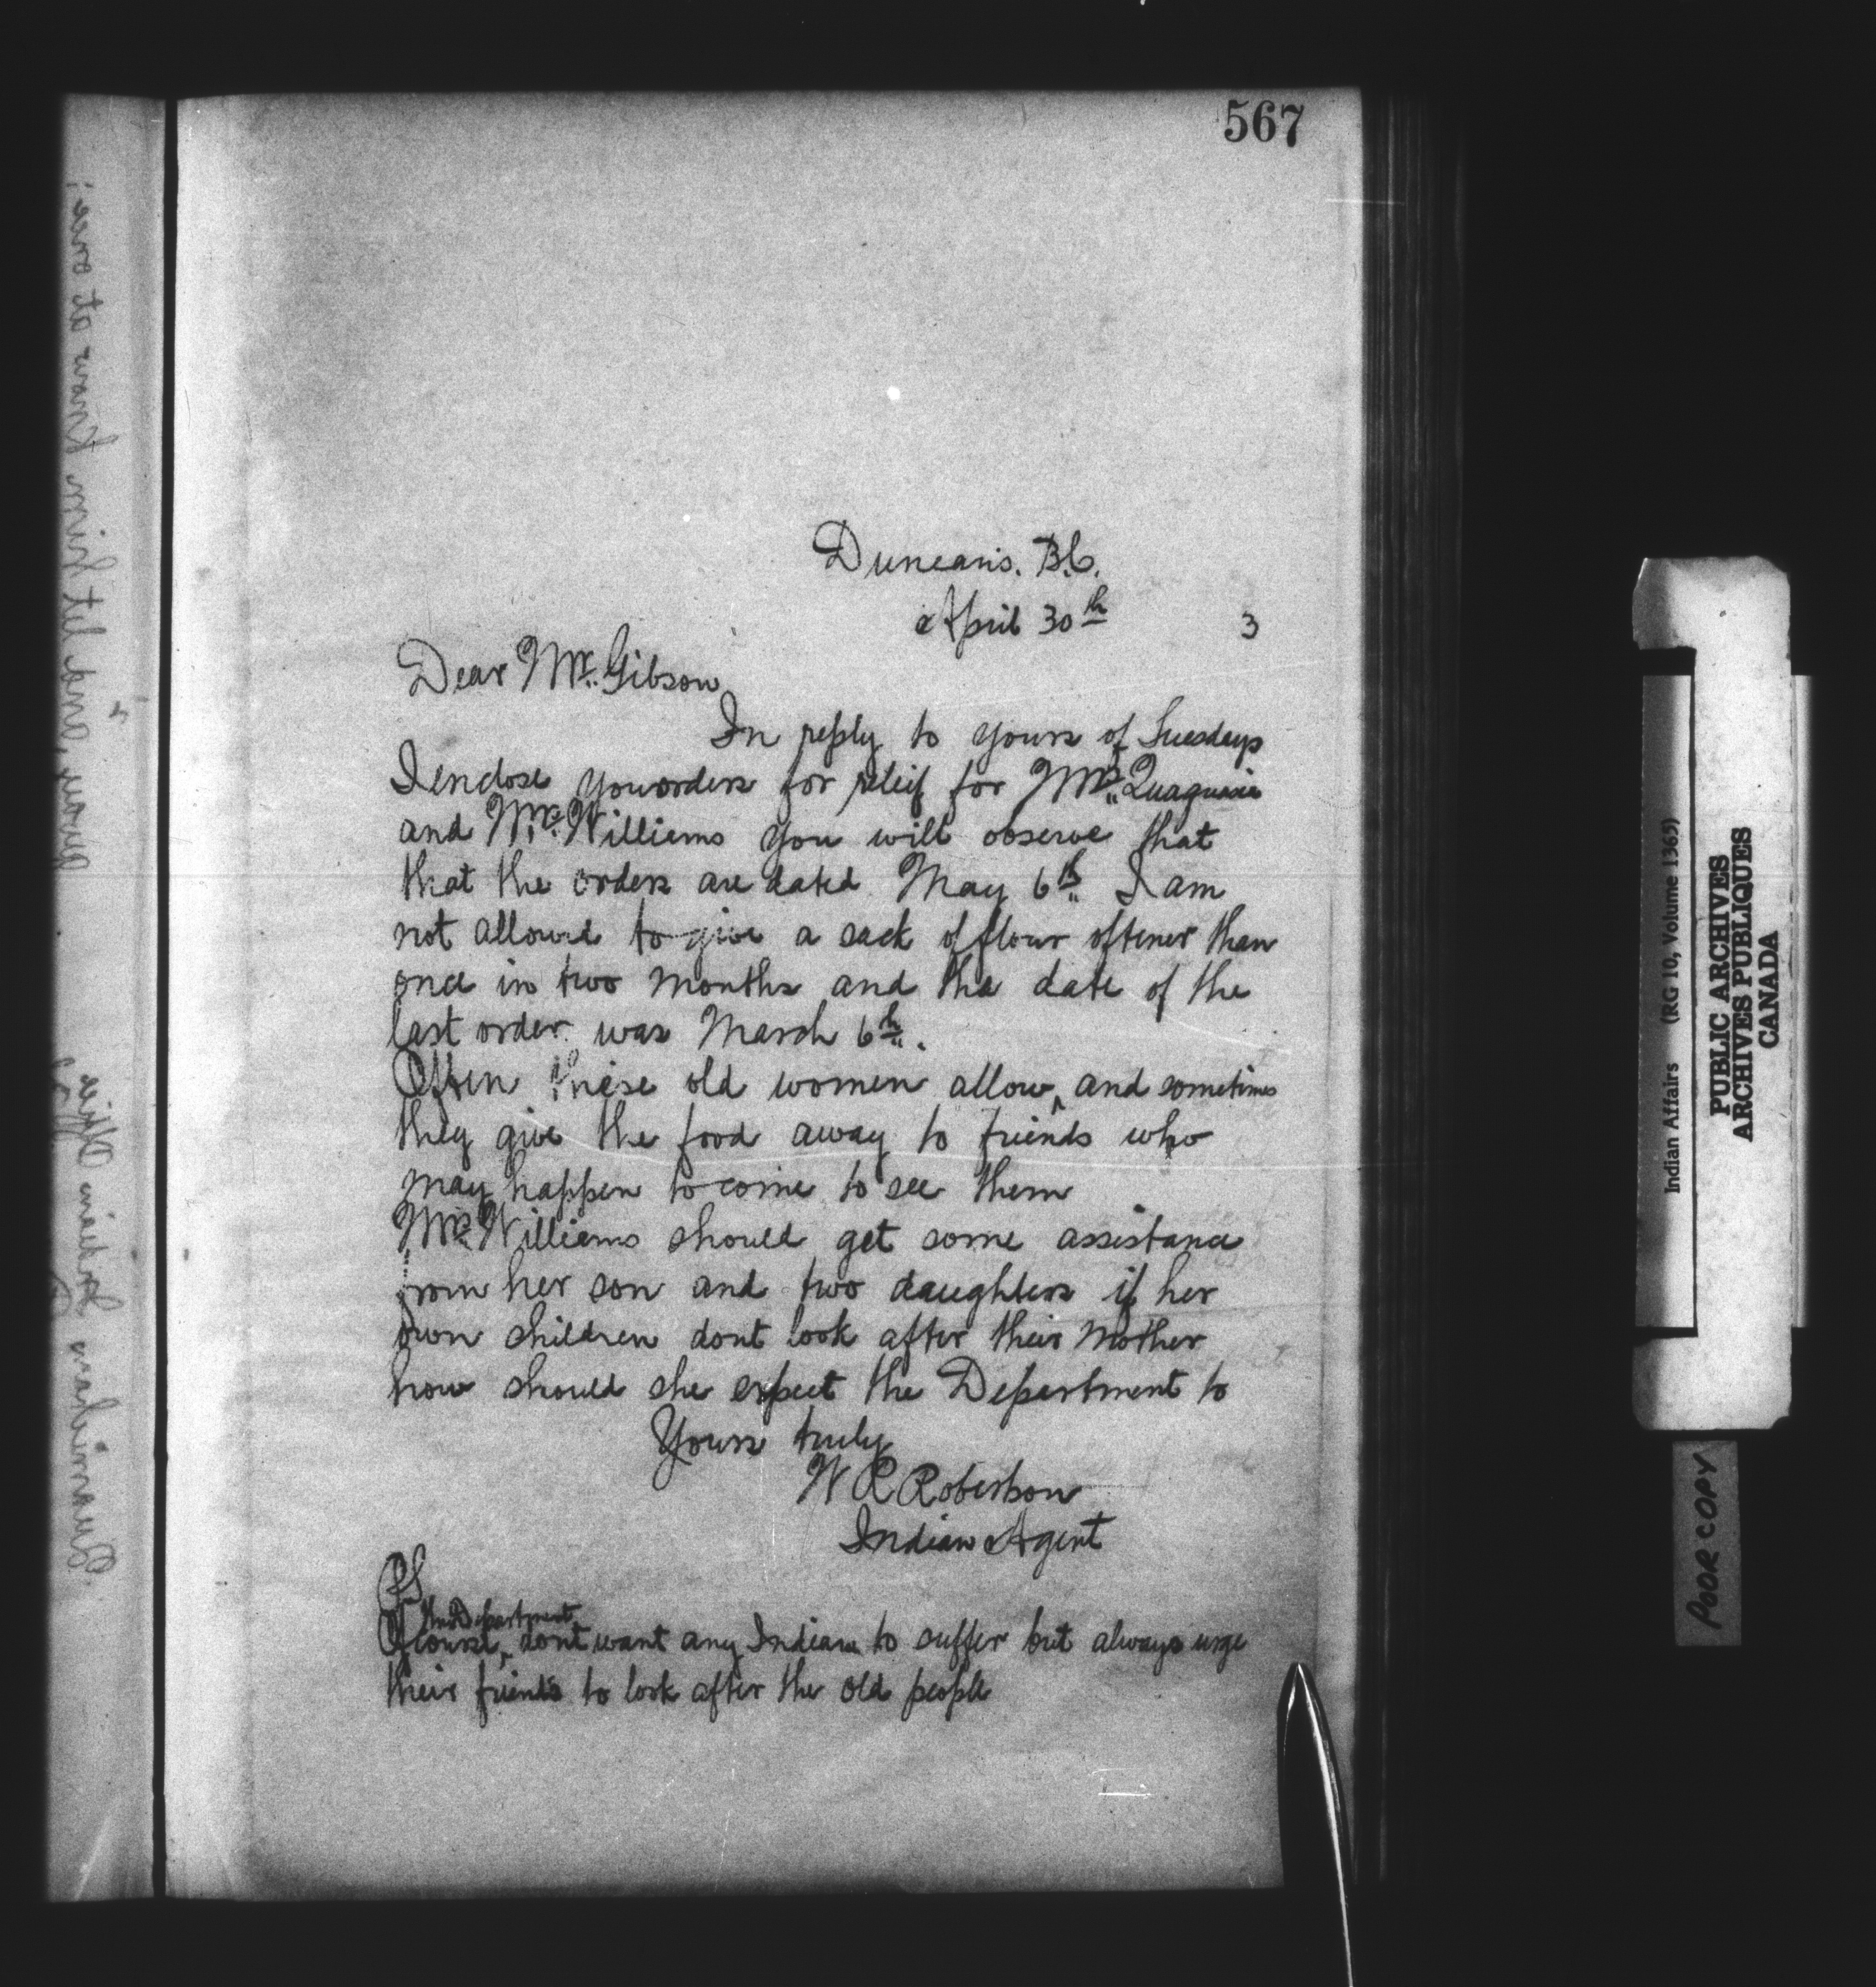 567
Duncans. B.C.
April 30th 3
Dear Mr. Gibson
In reply to yours of Tuesdays
I enclose you orders for relief for Mrs.
and Mrs. Williams you will observe that
that the orders are dated May 6th I am
not allowed to give a sack of flour oftener than
once in two months and the date of the
last order was March 6th.
Often these old women allow, and sometimes
they give the food away to friends who
may happen to come to see them
Mrs. Williams should get some assistance
from her son and two daughters if her
own children dont look after their mother
how should she expect the Department to
Yours truly
W R Robertson
Indian Agent
PS
Of course, the Department dont want any Indians to suffer but always urge
their friends to look after the old people
yours, and let him know to over;
Quamichan Indian Office
Indian Affairs (RG 10, Volume 1369)
PUBLIC ARCHIVES
ARCHIVES PUBLIQUES
CANADA
POOR COPY